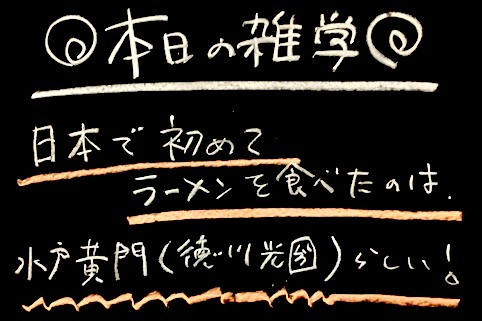 本日の雑学
日本で初めて
ラーメンを食べたのは.
水戸黄門(徳川光圀)らしい!